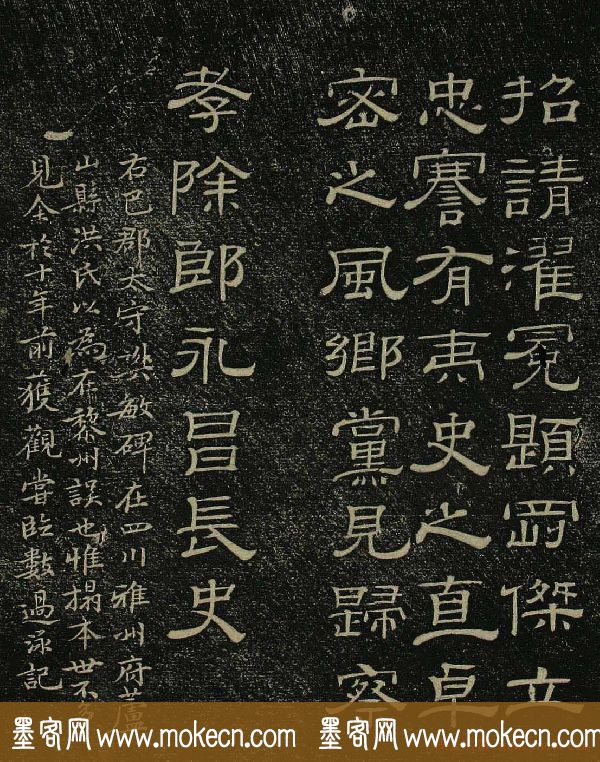 招請濯冕題岡傑立
忠謇有夷史之直卓
密之風鄉黨見歸察
孝除郎永昌長史
右巴郡太守樊敏碑在四川雅州府蘆
山縣洪氏以為在黎州誤也惟搨本世不多
見余於十年前獲觀嘗臨數過泳記
墨客网 www.mokecn.com 墨客网 www.mokecn.com